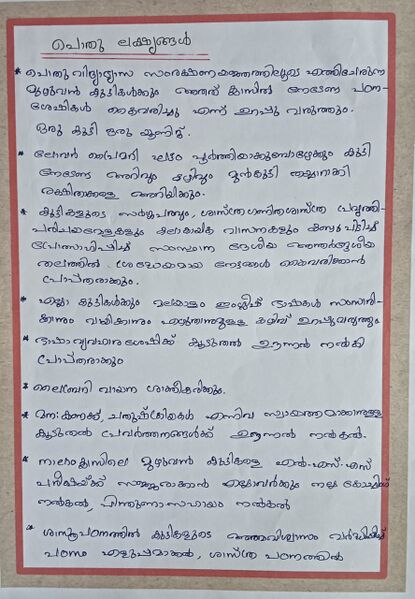 പൊതു ലക്ഷ്യങ്ങൾ
* പൊതു വിദ്യാഭ്യാസ സംരക്ഷണയജ്ഞത്തിലൂടെ എത്തിചേരുന്ന
മുഴുവൻ കുട്ടികൾക്കും അതത് ക്ലാസിൽ നേടേണ്ട പഠന-
ശേഷികൾ കൈവരിച്ചു എന്ന് ഉറപ്പു വരുത്തും.
ഒരു കുട്ടി ഒരു യൂണിറ്റ്.
* ലോവർ പ്രൈമറി ഘട്ടം പൂർത്തിയാക്കുമ്പോഴേക്കും കുട്ടി
നേടേണ്ട അറിവും കഴിവും മുൻകൂട്ടി തയ്യാറാക്കി
രക്ഷിതാക്കളെ അറിയിക്കും.
* കുട്ടികളുടെ സർഗ്ഗപരവും, ശാസ്ത്രഗണിതശാസ്ത്ര പ്രവൃത്തി-
പരിചയമേളകളും കലാകായിക വാസനകളും കണ്ടുപിടിച്ച്
പ്രോത്സാഹിപ്പിച്ച് സംസ്ഥാന ദേശീയ അന്തർദ്ദേശീയ
തലത്തിൽ ശ്രദ്ധേയമായ നേട്ടങ്ങൾ കൈവരിക്കാൻ
പ്രാപ്തരാക്കും.
* എല്ലാ കുട്ടികൾക്കും മലയാളം ഇംഗ്ലീഷ് ഭാഷകൾ സംസാരി-
ക്കാനും വായിക്കാനും എഴുതാനുമുള്ള കഴിവ് ഉറപ്പുവരുത്തും
* ഭാഷാ വ്യവഹാര ശേഷിക്ക് കൂടുതൽ ഊന്നൽ നൽകി
പ്രാപ്തരാക്കും
* ലൈബ്രറി വായന ശാക്തീകരിക്കും.
* മന:കണക്ക്, ചതുഷ്ക്രിയകൾ എന്നിവ സ്വായത്തമാക്കാനുള്ള
കൂടുതൽ പ്രവർത്തനങ്ങൾക്ക് ഊന്നൽ നൽകൽ.
* നാലാംക്ലാസിലെ മുഴുവൻ കുട്ടികളെ എൽ.എസ്.എസ്
പരീക്ഷയ്ക്ക് സജ്ജരാക്കാൻ എല്ലാവർക്കും നല്ല കോച്ചിങ്
നൽകൽ, പിന്തുണാസഹായം നൽകൽ
* ശാസ്ത്രപഠനത്തിൽ കുട്ടികളുടെ ആത്മവിശ്വാസം വർദ്ധിപ്പിച്ച്
പഠനം എളുപ്പമാക്കൽ, ശാസ്ത്ര പഠനത്തിൽ